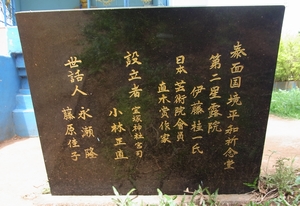 泰面国境平和祈念堂
第二星露院
伊藤桂一氏
日本芸術院会員
直木賞作家
設立者
宝塚神社宮司
小林正直
世話人
永瀬隆
藤原佳子